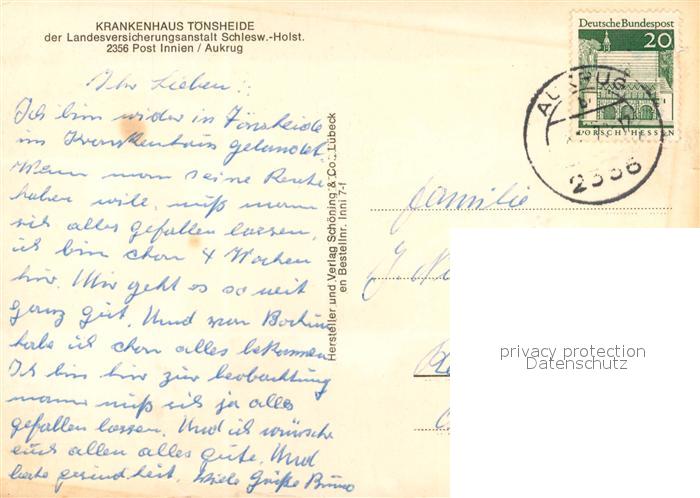 KRANKENHAUS TÖNSHEIDE
der Landesversicherungsanstalt Schlesw.-Holst.
2356 Post Innien / Aukrug
Ihr Lieben!
Ich bin wider in Tönsheide
im Krankenhaus gelandet.
Wenn man seine Rente
haben wile, muß mann
sich alles gefallen lassen,
ich bin chon 4 Wochen
hir. Mir geht es so weit
ganz gut. Und von
habe ich chon alles bekommen
Ich bin hir zur beobachtung
mann muß sich ja alles
gefallen lassen. Und ich wünsche
euch allen alles gute. Und
beste gesundheit. Viele Grüße Bruno
Hersteller und Verlag Schöning & Co., Lübeck
en Bestellnr. Inni 7-f
Deutsche Bundespost
20
LORSCH/HESSEN
AUKRUG
2356
Familie
privacy protection
Datenschutz